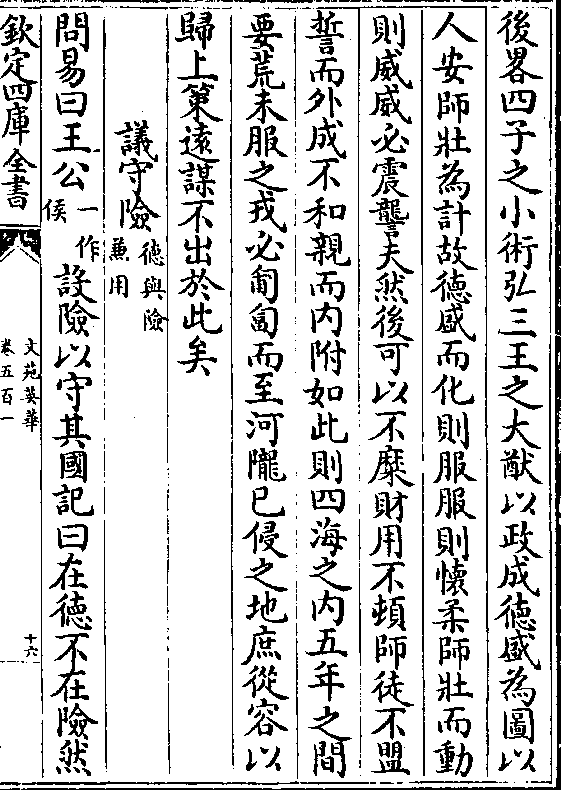 後畧四子之小術弘三王之大猷以政成德盛為圖以
人安師壯為計故德盛而化則服服則懷柔師壯而動
則威威必震讋夫然後可以不糜財用不頓師徒不盟
誓而外成不和親而内附如此則四海之内五年之間
要荒未服之戎必匍匐而至河隴已侵之地庶從容以
歸上策遠謀不出於此矣
議守險
德與險
兼用
問易曰王公
一作
侯
設險以守其國記曰在德不在險然
欽定四庫全書
文苑英華
卷五百一
十六